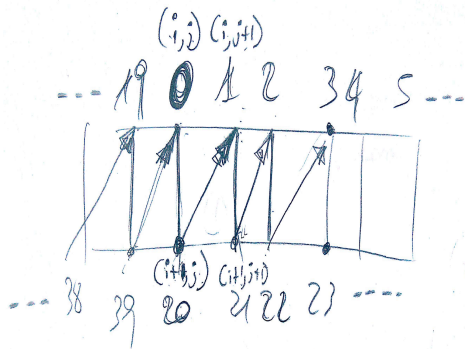 (i,j) (i,j+1)
---- 19 0 1 2 3 4 5 ----
(i+1,j) (i+1,j+1)
---- 38 39 20 21 22 23 ----